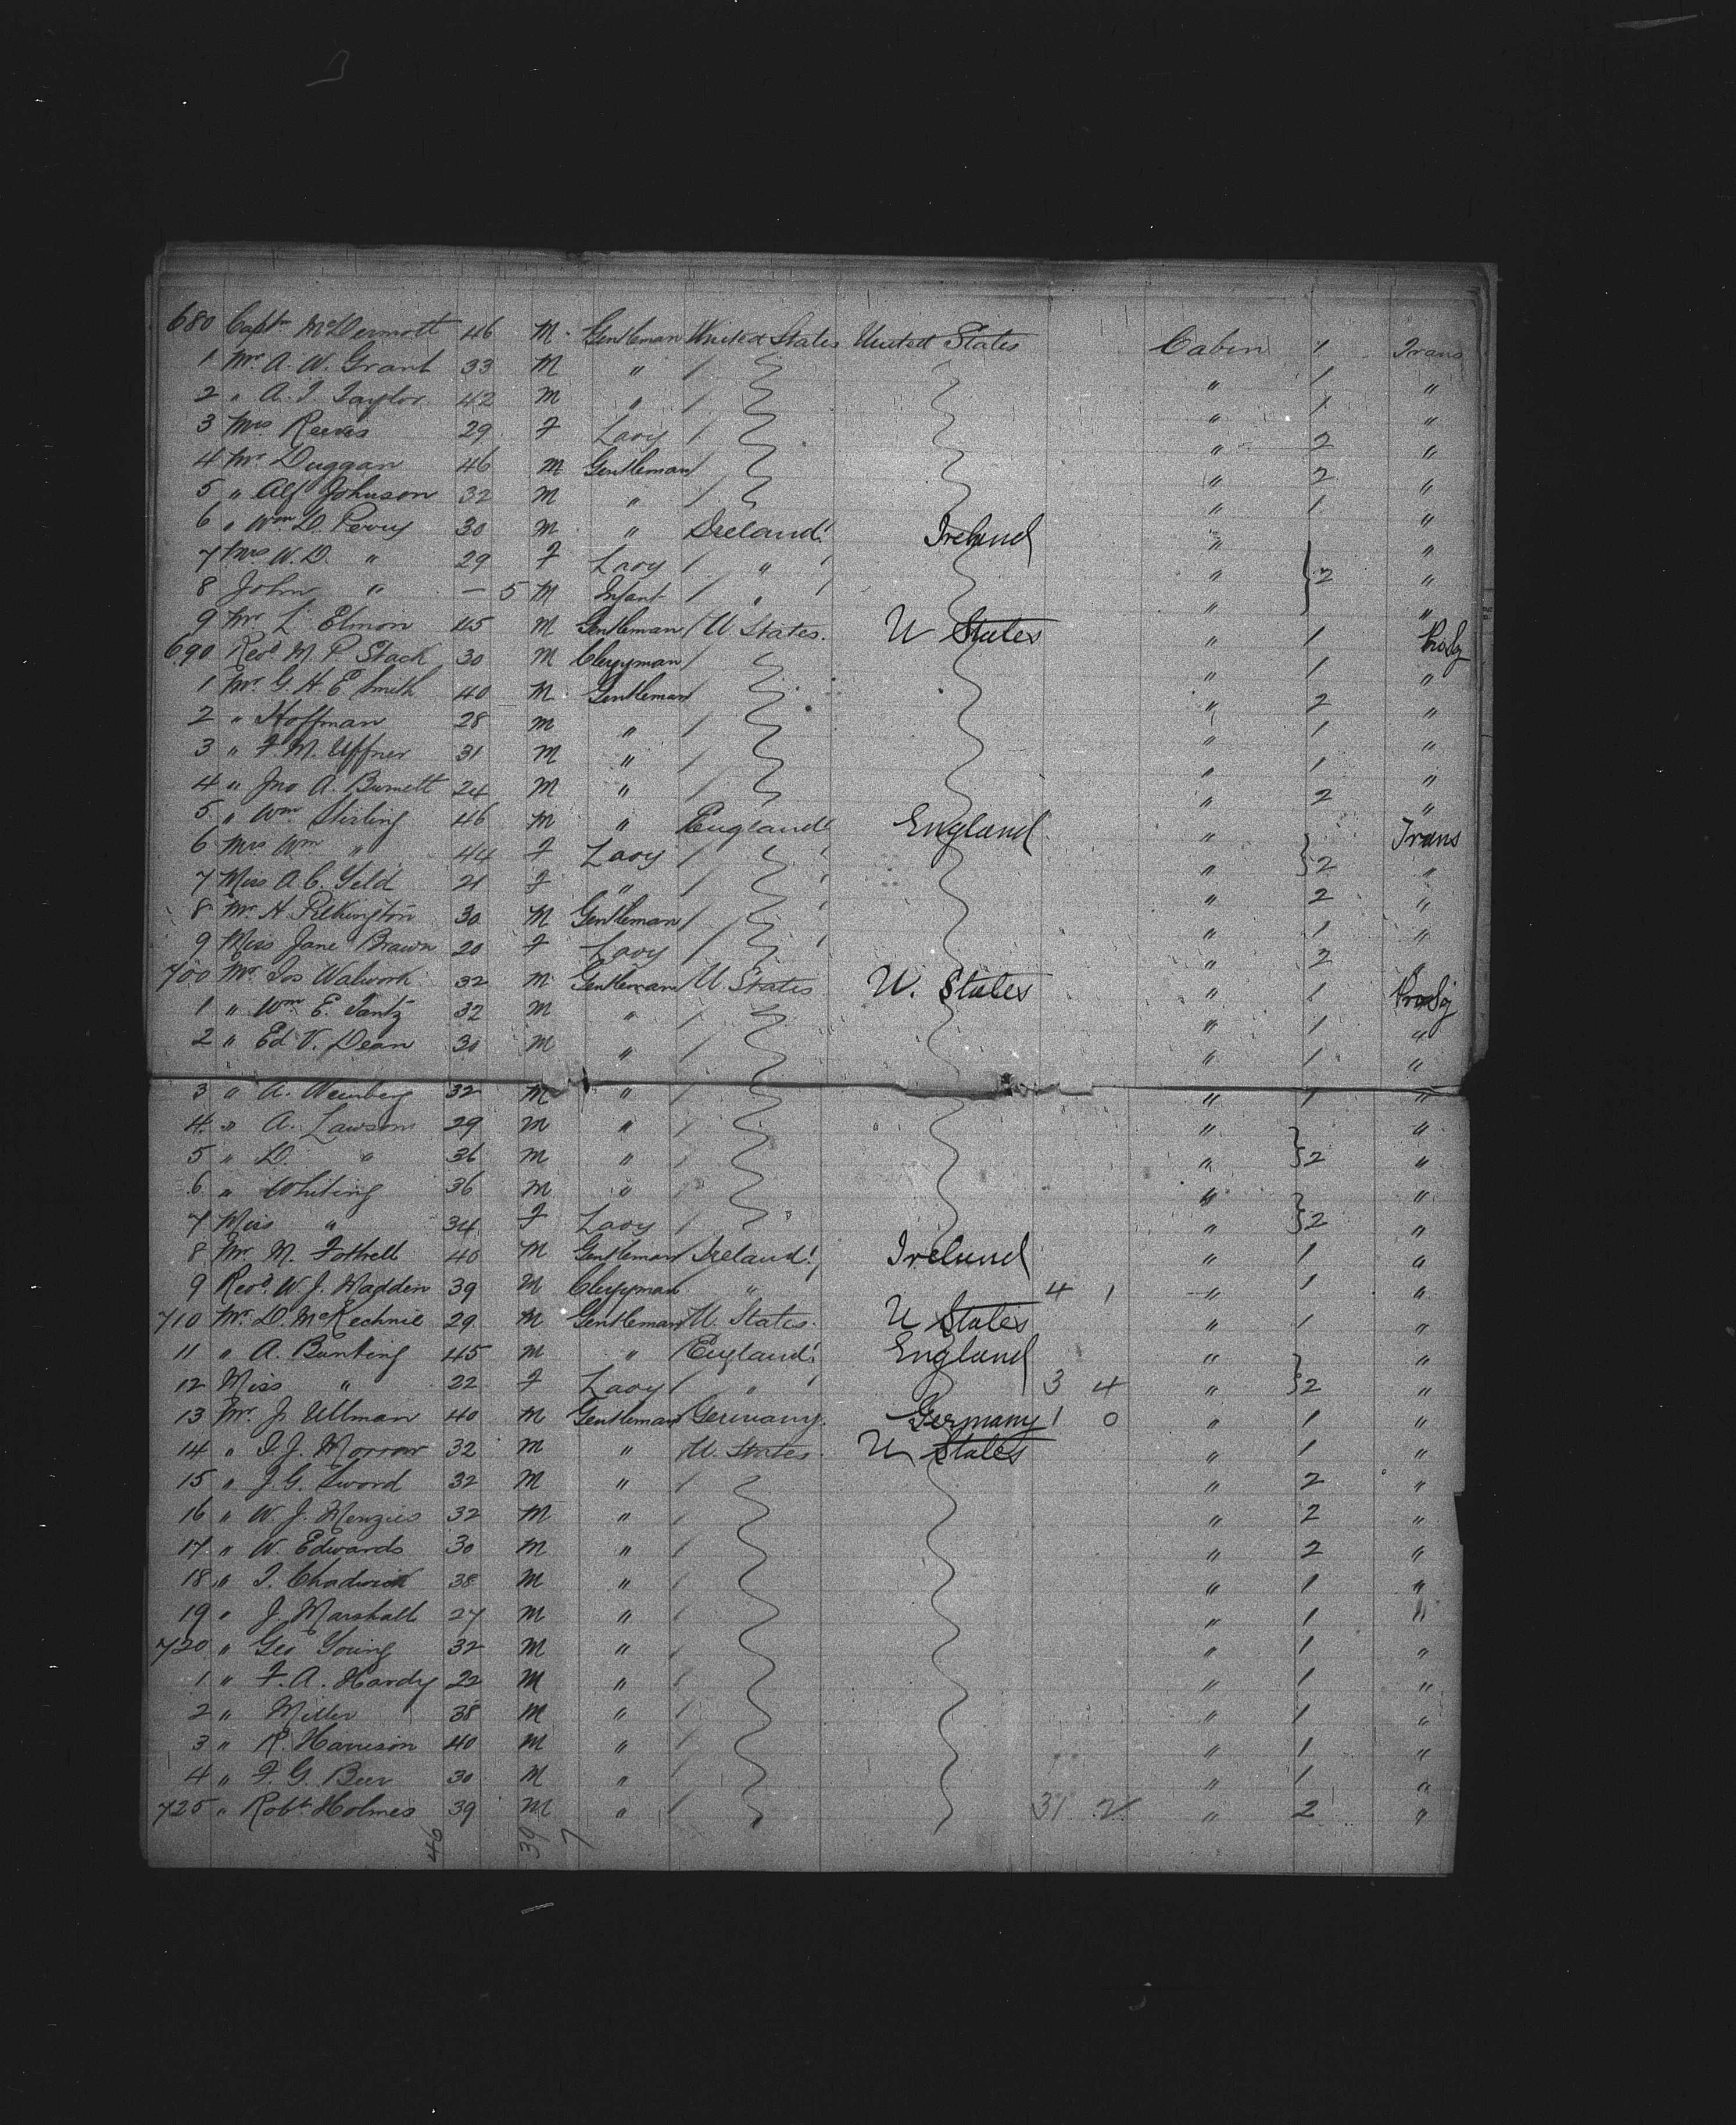 680 Capt. McDermott 46 M. Gentleman United States United States Cabin 1 Trans
1 Mr. A. W. Grant 33 M " / " 1 "
2 " A. T. Taylor 42 M " / " 1 "
3 Mrs Reeves 29 F Lady / " 2 "
4 Mr. Duggan 46 M Gentleman / " 2 "
5 " Alf Johnson 32 M " / " 1 "
6 " Wm D. Perry 30 M " Ireland Ireland " "
7 Mrs W. D. " 29 F Lady / " " } 2 "
8 John " — 5 M Infant / " " "
9 Mr. L. Elmon 45 M Gentleman / U States. U States " 1
690 Revd M. P. Stack 30 M Clergyman / " 1 "
1 Mr. G. H. E. Smith 40 M Gentleman " 2 "
2 " Hoffman 28 M " / " 1 "
3 " F. M. Uffner 31 M " / " 1 "
4 " Jno A. Burnett 24 M " / " 2 "
5 " Wm. Stirling 46 M " England England " Trans
6 Mrs Wm " 44 F Lady / " } 2 "
7 Miss A. C. Yeld 21 F " / " 2 "
8 Mr. H. Pilkington 30 M Gentleman / " 1 "
9 Miss Jane Brawn 20 F Lady / " 2 "
700 Mr. Jos Walwork 32 M Gentleman / U. States U. States " 1
1 " Wm E. Tantz 32 M " / " 1 "
2 " Ed V. Dean 30 M " / " 1 "
3 " A. Weinberg 32 M " / " 1 "
4 " A. Lawson 29 M " / " "
5 " D. " 36 M " / " } 2 "
6 " Whiting 36 M " / " "
7 Miss " 34 F Lady / " } 2 "
8 Mr. M. Fottrell 40 M Gentleman Ireland Ireland " 1 "
9 Revd. W. J. Madden 39 M Clergyman " 4 1 " 1 "
710 Mr. D. McKechnie 29 M Gentleman U. States. U States " 1 "
11 " A. Bunting 45 M " England England " "
12 Miss " 22 F Lady / " 3 4 " } 2 "
13 Mr. J. Ullman 40 M Gentleman Germany. Germany 1 0 " 1 "
14 " I. J. Morrow 32 M " U. States. U States " 1 "
15 " J. G. Sword 32 M " / " 2 "
16 " W. J. Menzies 32 M " / " 2 "
17 " W. Edwards 30 M " / " 2 "
18 " T. Chadwick 38 M " / " 1 "
19 " J. Marshall 27 M " / " 1 "
720 " Geo Young 32 M " / " 1 "
1 " F. A. Hardy 22 M " / " 1 "
2 " Miller 38 M " / " 1 "
3 " R. Harrison 40 M " / " 1 "
4 " F. G. Beer 30 M " / " 1 "
725 " Robt. Holmes 39 M " / 31 2 " 2 "
46 39 7